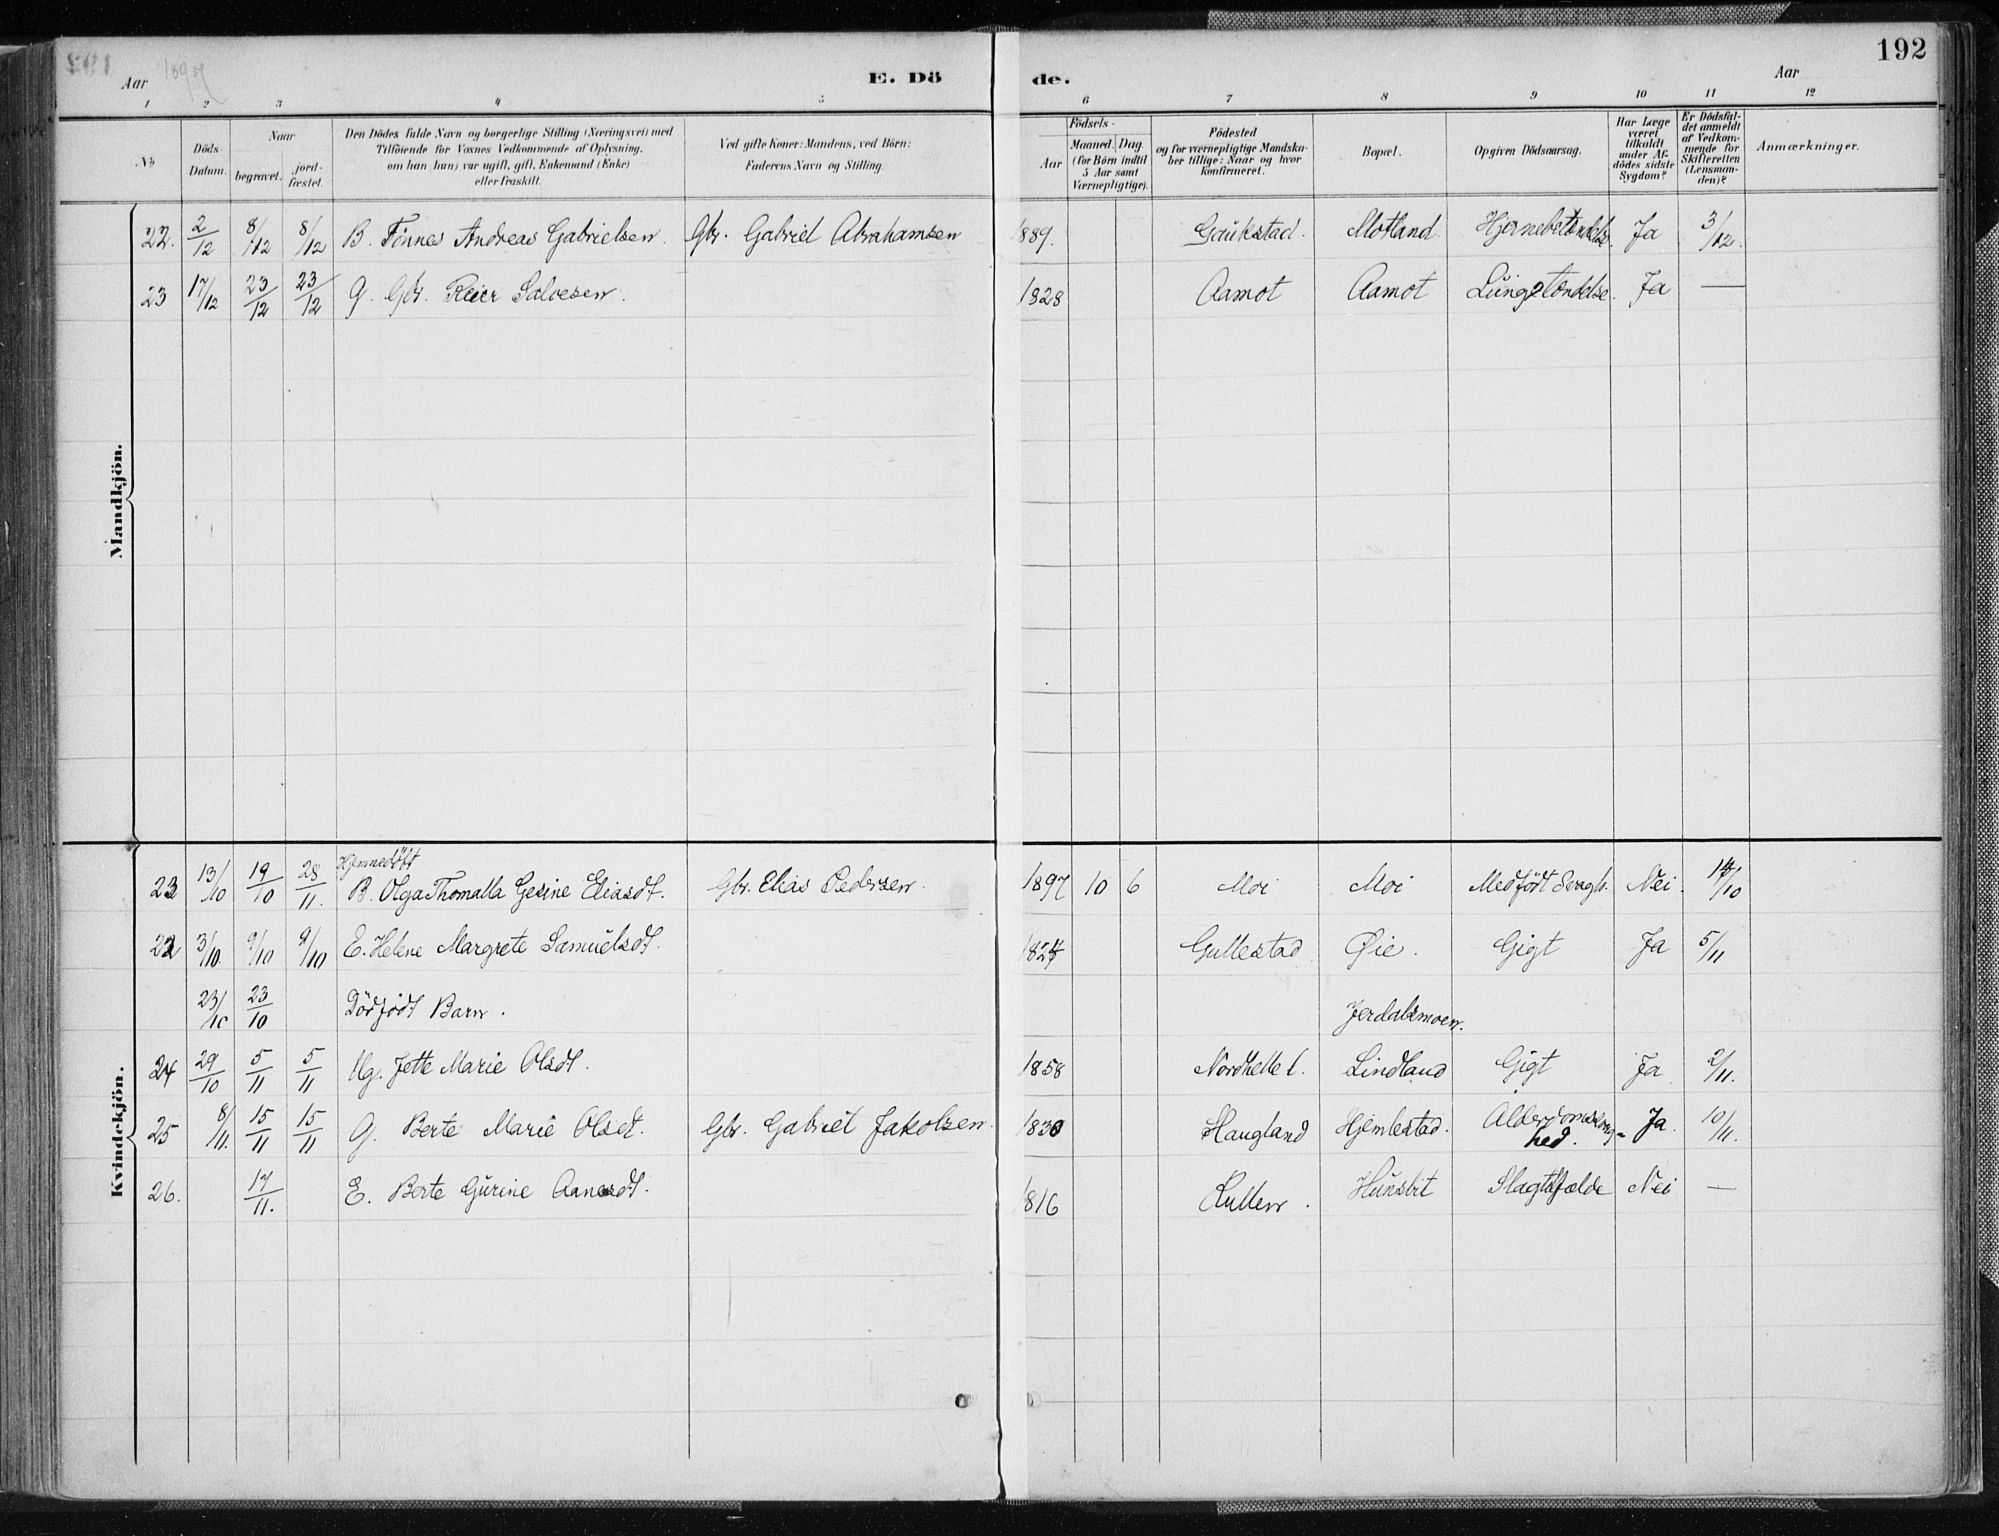 192
Aar 189
E. Dö
de.
Aar
1 2 3 4 5 6 7 8 9 10 11 12
No
Döds-Datum.
Naar
begravet.
jord-fæstet.
Den Dödes fulde Navn og borgerlige Stilling (Næringsvei) med
Tilföiende for Voxnes Vedkommende af Oplysning,
om han (hun) var ugift, gift, Enkemand (Enke)
eller fraskilt.
Ved gifte Koner: Mandens, ved Börn:
Faderens Navn og Stilling.
Födsels-
Aar
Maaned. Dag.
(for Börn indtil
5 Aar samt
Værnepligtige).
Födested
og for værnepligtige Mandska-
ber tillige: Naar og hvor
konfirmeret.
Bopæl.
Opgiven Dödsaarsag.
Har Læge
været
tilkaldt
under Af-
dödes sidste
Sygdom?
Er Dödsfal-
det anmeldt
af Vedkom-
mende for
Skifteretten
(Lensman-
den)?
Anmærkninger.
Mandkjön.
22. 2/12 8/12 8/12 B. Tönnes Andreas Gabrielsen. Gbr. Gabriel Abrahamsen 1889. Gaukstad. Motland. Hjernebetændelse. Ja 3/12.
23 17/12 23/12 23/12 G. Gbr. Reier Salvesen. 1828 Aamot Aamot Lungetændelse. Ja —
Kvindekjön.
Hjemmedöbt
23 13/10 19/10 28/11. B. Olga Thomalla Gesine Eliasdt. Gbr. Elias Pedersen. 1897 10 6 Moi Moi Medfödt Svagh. Nei. 14/10
22 3/10. 9/10 9/10 E. Helene Margrete Samuelsdt. 1824 Gullestad Øie. Gigt Ja 5/11
23/10 23/10 Dödfödt Barn. Jerdalsmoen.
24 29/10 5/11 5/11 Ug. Jette Marie Olsdt. 1858 Nordhelle l. Lindland Gigt Ja 2/11.
25 8/11. 15/11 15/11 G. Berte Marie Olsdt. Gbr. Gabriel Jakobsen. 1830 Haugland Hjemlestad. Alderdomssvag-
hed. Ja. 10/11.
26. 17/11. E. Berte Gurine Aanesdt. 1816 Rullen. Hunsbit Slagtilfælde Nei —